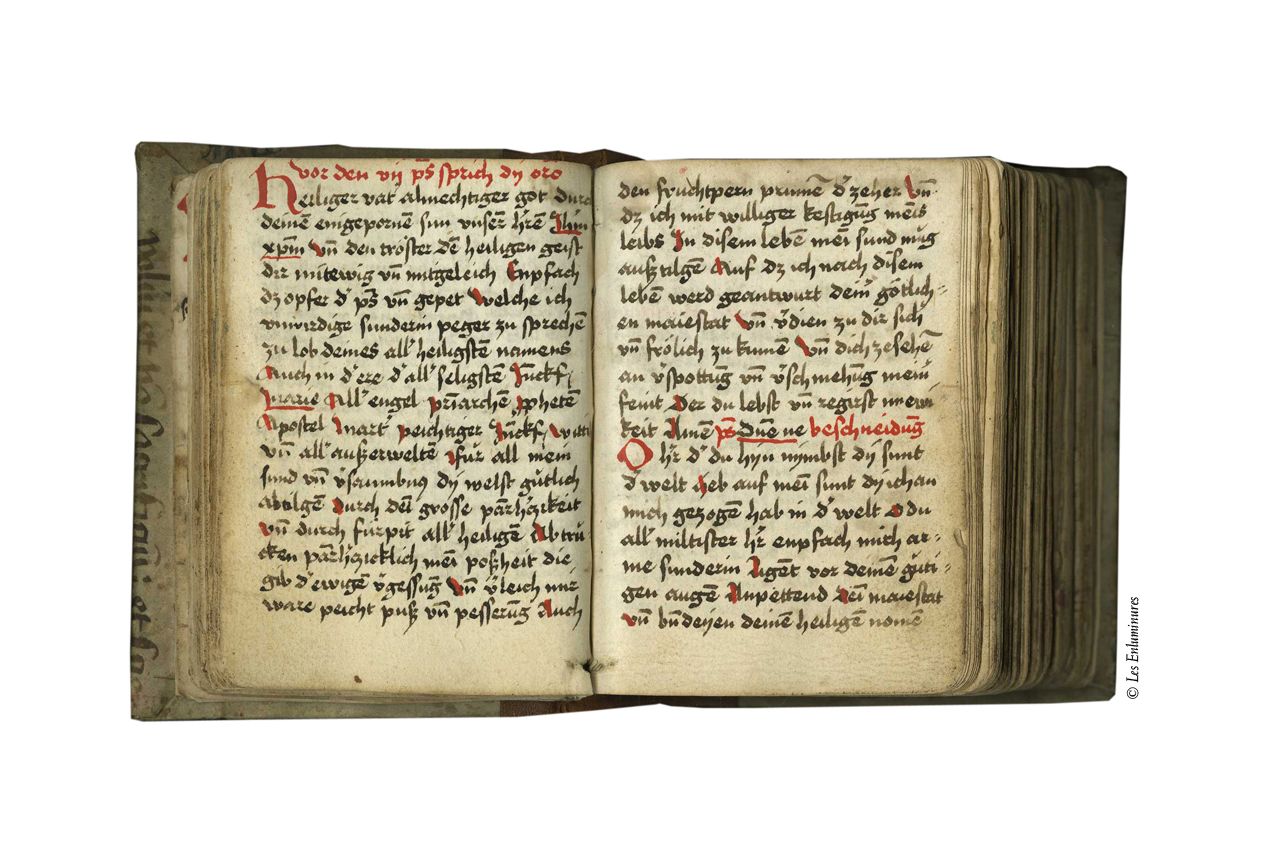 vor den vij ps̄ sprich dy oro
Heiliger vat almechtiger got durch
deinen eingepornē sun vnserñ hrēn Jhm
xpm Vn̄ den tröster dē heiligen geist
dir mitewig vn̄ mitgeleich Enpfach
dz opfer d' ps̄ vn̄ gepet Welche ich
vnwirdige sunderin peger zu sprechē
zu lob deines all' heiligstē namens
Auch in d' ere d' all' seligstē Junckf
marie All' engel pri̅archē ꝓphetē
Apostel Mart' peichtiger Junckf witti
vn̄ all' außerweltē für all mein
sund vn̄ v'saumbnus dy welst gütlich
abtilgē Durch dei̅ grosse parm̅h'czikeit
Vn̄ durch fürpit all' heiligē Abtru
cken parm̅h'czicklich mei̅ poßheit die
gib d' ewigē v'gessūg Vn̄ v'leich mir
ware peicht puß vn̄ pesserūg Auch
den fruchtpern prunnē d' zeher Vn̄
dz ich mit williger kestigūg mei̅s
leibs In disem lebē mei̅ sund müg
außtilgē Auf dz ich nach disem
lebē werd geantwurt dein' götlich=
en maiestat Vn̄ v'dien zu dir sich
vn̄ frölich zu kumē Vn̄ dich zesehē
an v'spottūg vn̄ v'schmehūg mein'
feint Der du lebst vn̄ regirst in ewi
keit Amē ps̄ Dn̄e ne beschneidūg
O h'r d' du hyn nymbst dy sunt
d' welt heb auf mei̅ sunt dy ich an
mich gezogen hab in d' welt O du
all' miltister h'r enpfach mich ar=
me sunderin Ligēt vor deinē güti=
gen augē Anpettend dei̅ maiestat
vn̄ bn̄deyen deinē heiligē nomē
© Les Enluminures